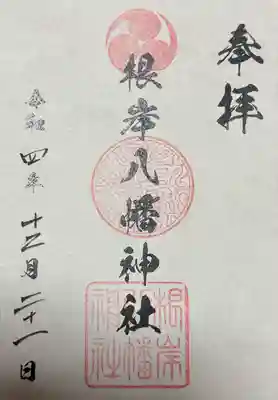 奉拝
根岸八幡神社
令和四年十二月二十一日
根岸八幡神社